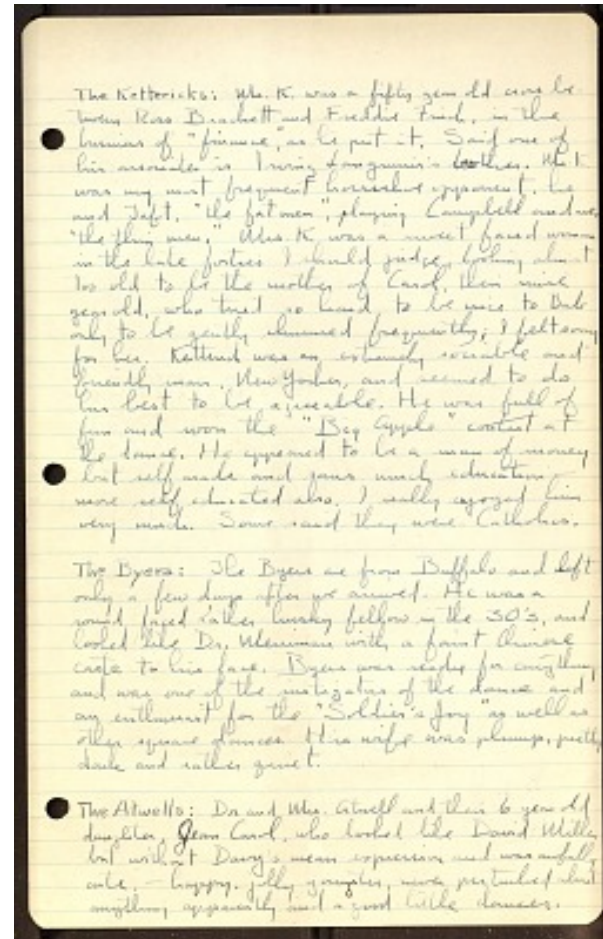 The Kettericks: Mr. K. was a fifty year old cross be-
tween Ross Brackett and Freddie Finch, in the
business of "finance", as he put it. Said one of
his associates is Irving Langmuir's brother. Mr. K
was my most frequent horseshoe opponent, he
and Taft, "the fat men", playing Campbell and me,
"the thin men." Mrs. K. was a sweet faced woman
in the late forties I should judge, looking almost
too old to be the mother of Carol, then nine
years old, who tried so hard to be nice to Bab
only to be gently shunned frequently; I felt sorry
for her. Ketterick was an extremely sociable and
friendly man, New Yorker, and seemed to do
his best to be agreeable. He was full of
fun and won the "Big Apple" contest at
the dance. He appeared to be a man of money
but self made and much education
more self educated also. I really enjoyed him
very much. Some said they were Catholics.
The Byers: The Byers are from Buffalo and left
only a few days after we arrived. He was a
round faced rather husky fellow in the 30's, and
looked like Dr. Merriman with a faint Chinese
caste to his face. Byers was ready for anything
and was one of the instigators of the dance and
an enthusiast for the "Soldier's Joy" as well as
other square dances. His wife was plump, pretty,
dark and rather quiet.
The Atwells: Dr. and Mrs. Atwell and their 6 year old
daughter, Jean Carol, who looked like David Miller
but without Davy's mean expression and was awfully
cute, – happy, jolly youngster, never perturbed about
anything apparently and a good little dancer.